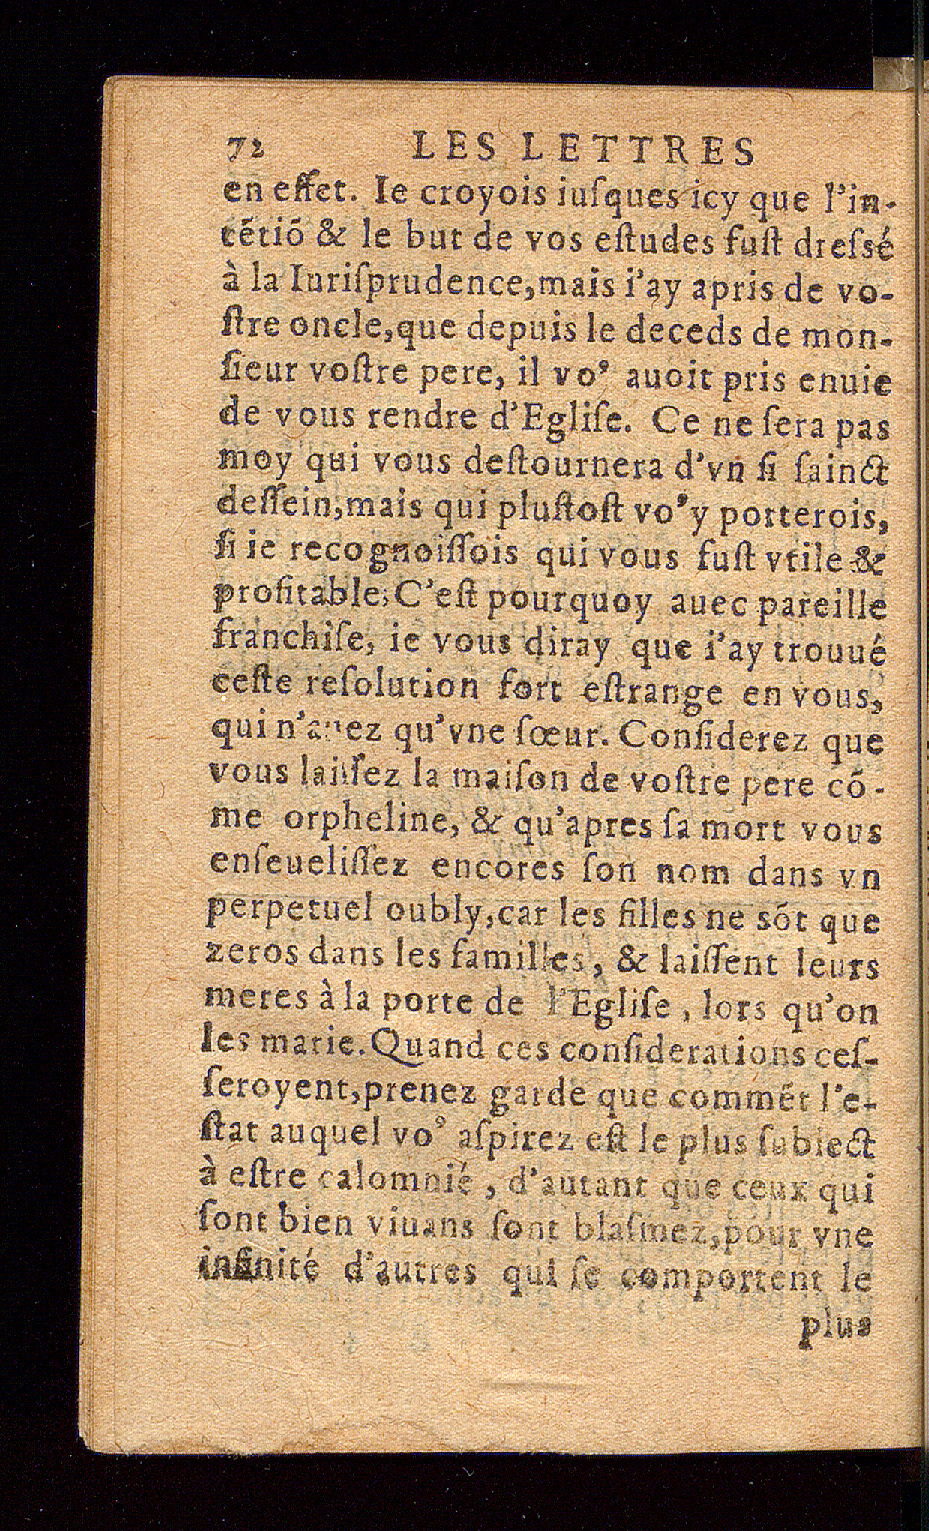 72 LES LETTRES
en effet. Ie croyois iuſques icy que l'in-
tẽtiõ & le but de vos eſtudes fuſt dreſsé
à la Iuriſprudence,mais i'ay apris de vo-
ſtre oncle,que depuis le deceds de mon-
ſieur voſtre pere, il voꝰ auoit pris enuie
de vous rendre d'Egliſe. Ce ne ſera pas
moy qui vous deſtournera d'vn ſi ſainct
deſſein,mais qui pluſtoſt voꝰy porterois,
ſi ie recognoiſſois qui vous fuſt vtile &
profitable, C'eſt pourquoy auec pareille
franchiſe, ie vous diray que i'ay trouué
ceſte reſolution fort eſtrange en vous,
qui n'auez qu'vne ſœur. Conſiderez que
vous laiſſez la maiſon de voſtre pere cõ-
me orpheline, & qu'apres ſa mort vous
enſeueliſſez encores ſon nom dans vn
perpetuel oubly,car les filles ne sõt que
zeros dans les familles, & laiſſent leurs
meres à la porte de l'Egliſe, lors qu'on
les marie. Quand ces conſiderations ceſ-
ſeroyent,prenez garde que commẽt l'e-
ſtat auquel voꝰ aſpirez eſt le plus ſubiect
à eſtre calomnié, d'autant que ceux qui
ſont bien viuans ſont blaſmez,pour vne
infinité d'autres qui ſe comportent le
plus